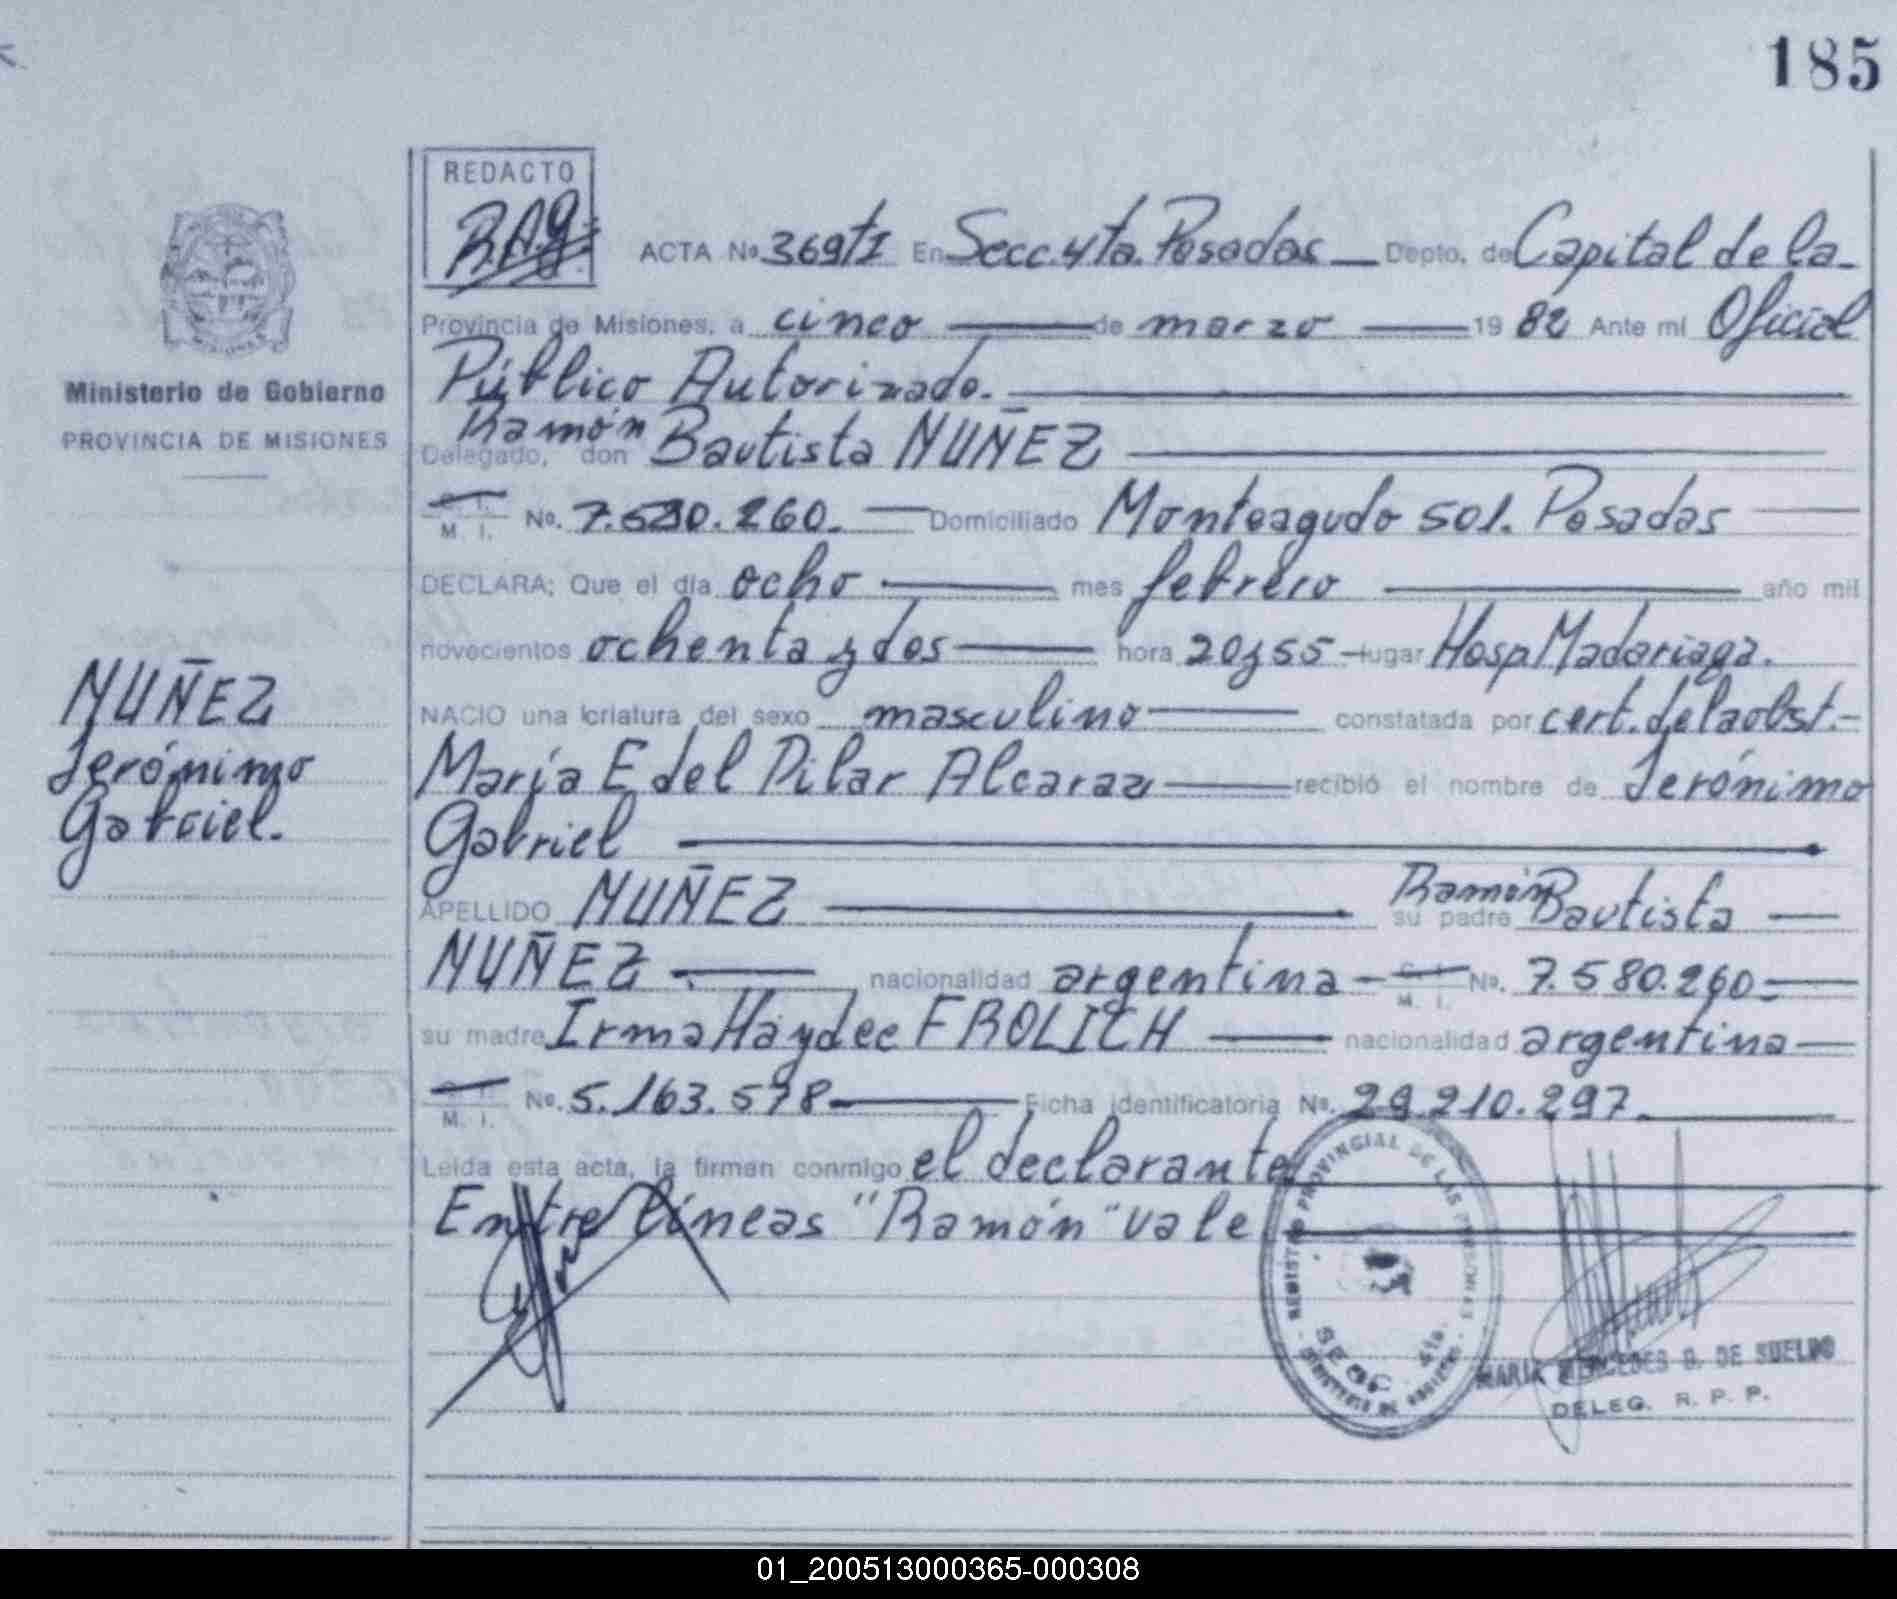 185
REDACTO
B.A.G.
ACTA No. 369TI En Secc. 4ta. Posadas Depto. de Capital de la
Provincia de Misiones, a cinco de marzo 19 82 Ante mí Oficial
Público Autorizado.
Ramón
Delegado, don Bautista NUÑEZ
M. I. No. 7.580.260. Domiciliado Monteagudo 501. Posadas
DECLARA; Que el día ocho mes febrero año mil
novecientos ochenta y dos hora 20y55 lugar Hosp Madariaga.
NACIO una criatura del sexo masculino constatada por cert. de la obst.
María E del Pilar Alcaraz recibió el nombre de Jerónimo
Gabriel
Ramón
APELLIDO NUÑEZ su padre Bautista
NUÑEZ nacionalidad argentina C. I. M. I. No. 7.580.260
su madre Irma Haydee FROLICH nacionalidad argentina
M. I. No. 5.163.578 Ficha identificatoria No. 29.210.297.
Leída esta acta, la firman conmigo el declarante
Entre líneas "Ramón" vale
MISIONES
Ministerio de Gobierno
PROVINCIA DE MISIONES
NUÑEZ
Jerónimo
Gabriel.
REGISTRO PROVINCIAL DE LAS PERSONAS
SECC. 4ta.
MINISTERIO DE GOBIERNO
MARIA MERCEDES B. DE SUELDO
DELEG. R. P. P.
01_200513000365-000308